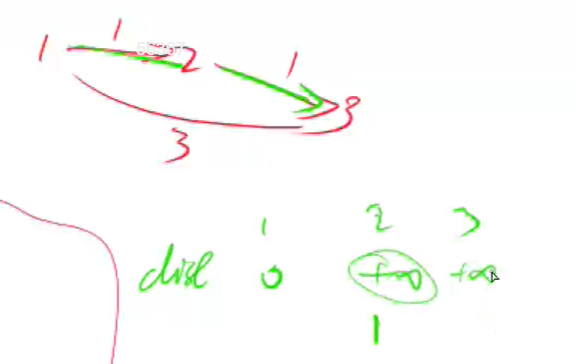 1
1 2 1
3
3
1 2 3
dist 0 +∞ +∞
1